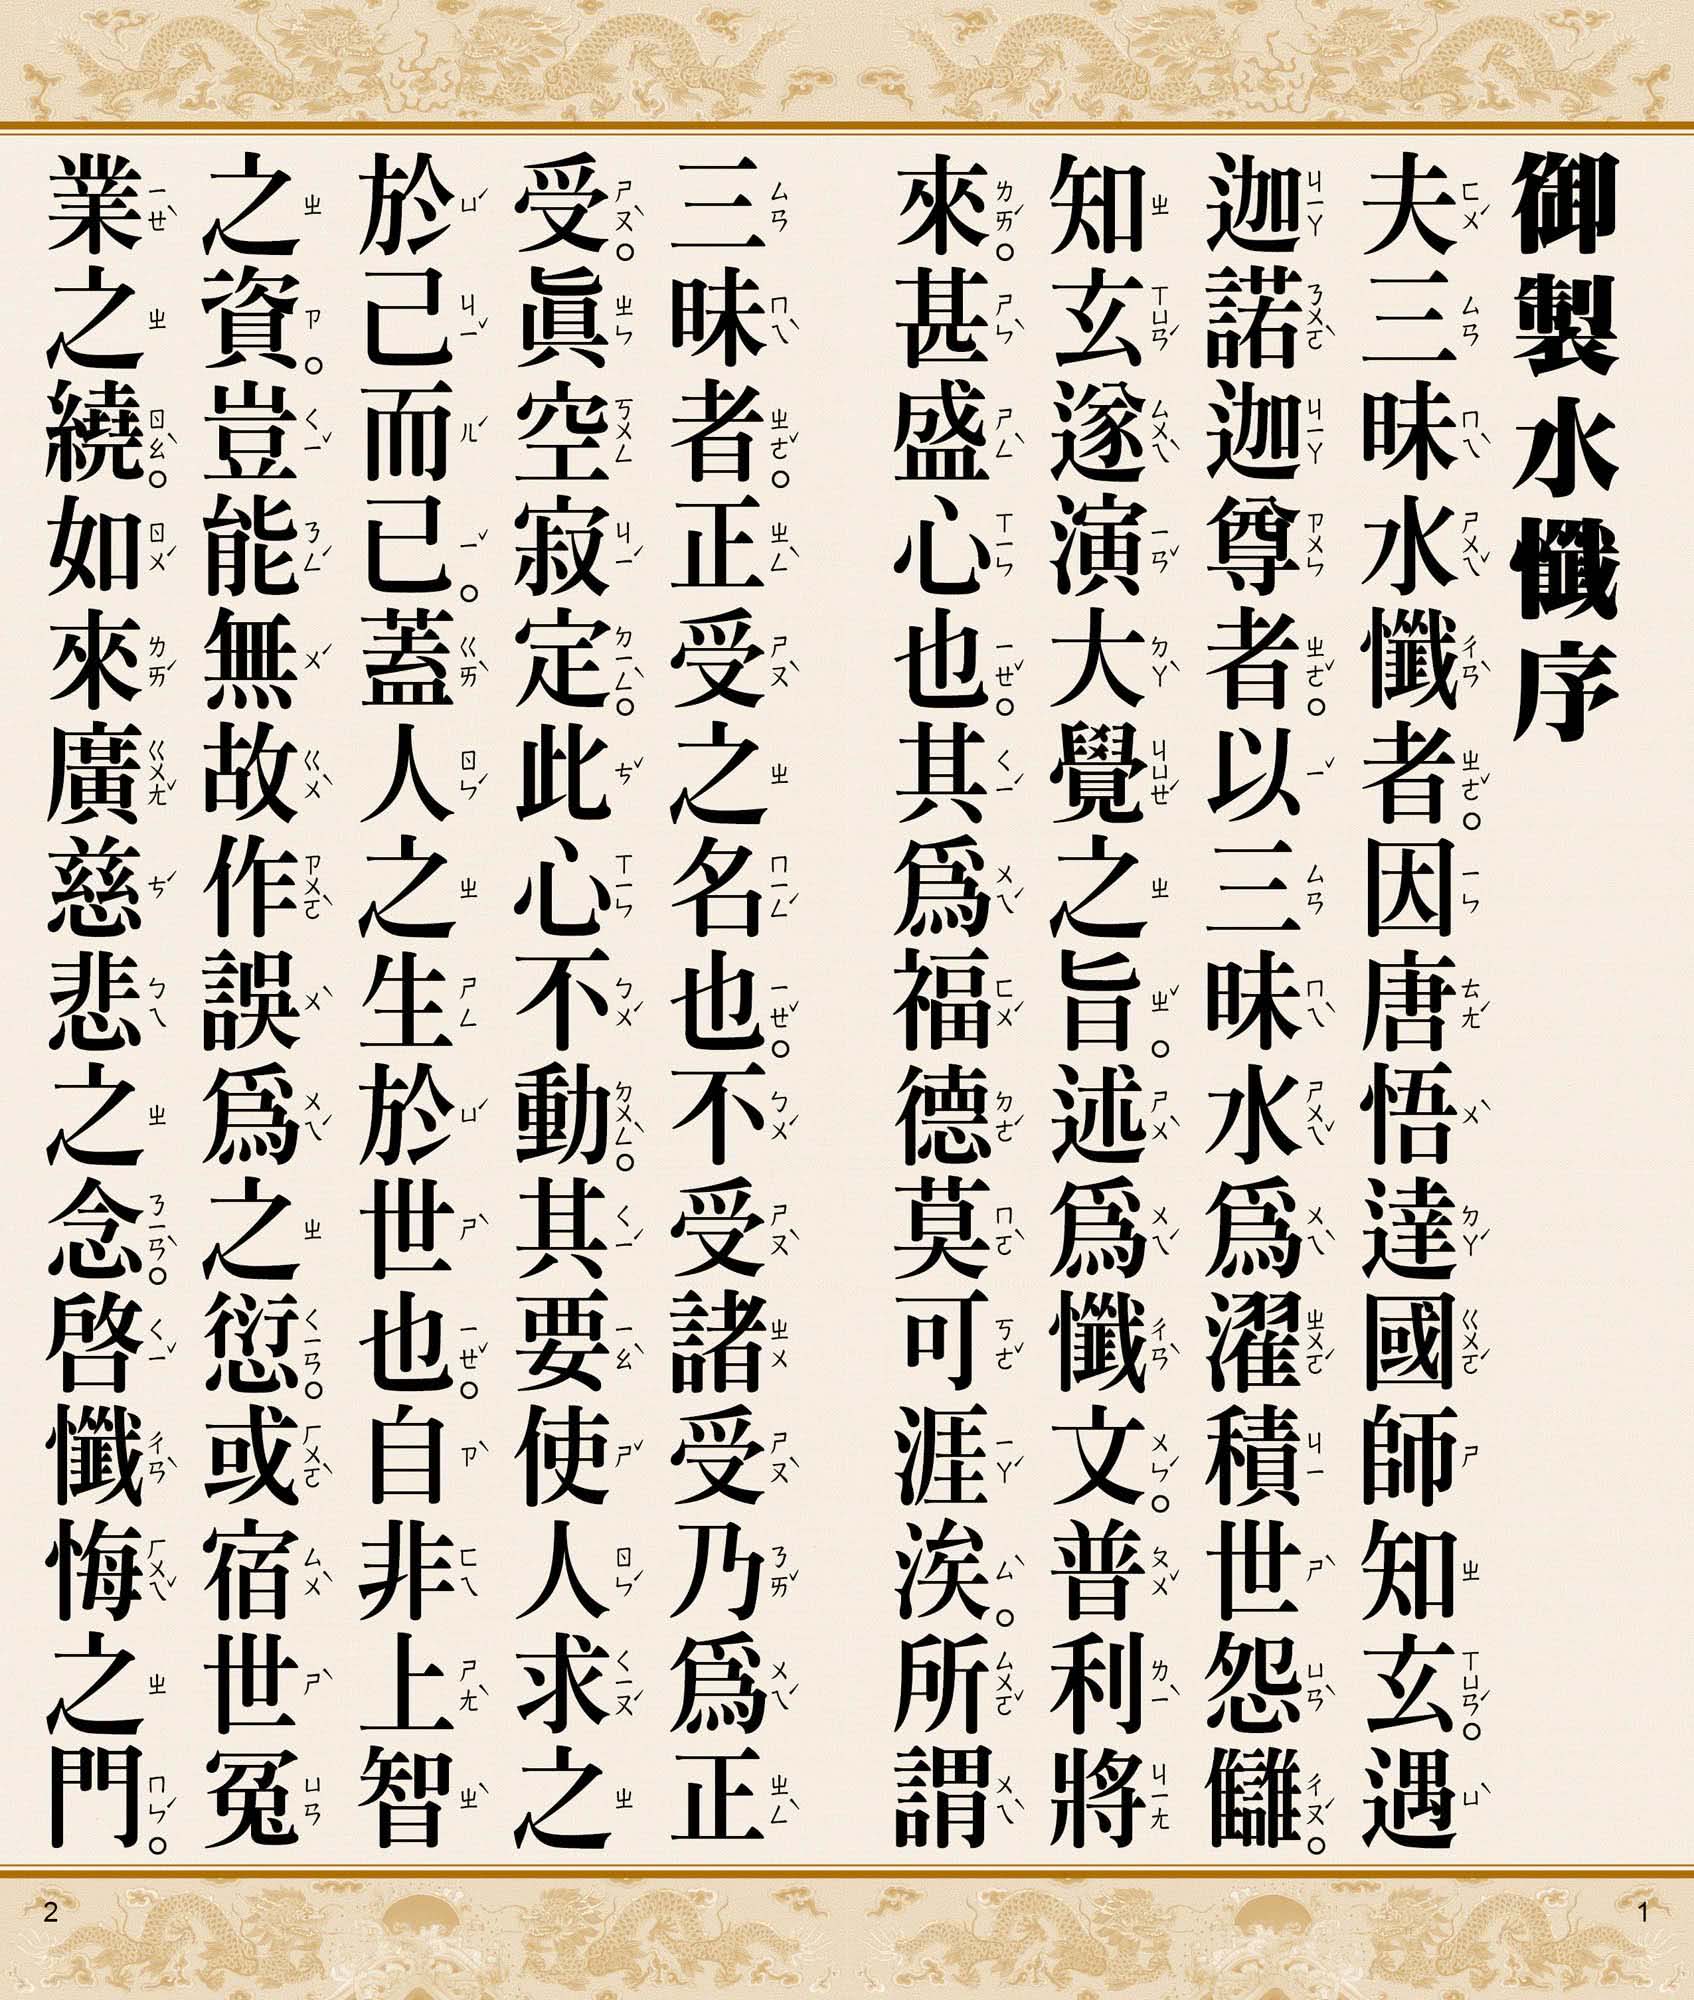 御製水懺序
夫三昧水懺者。因唐悟達國師知玄。遇
迦諾迦尊者。以三昧水為濯積世怨讎。
知玄遂演大覺之旨。述為懺文。普利將
來。甚盛心也。其為福德莫可涯涘。所謂
三昧者。正受之名也。不受諸受乃為正
受。眞空寂定。此心不動。其要使人求之
於己而已。蓋人之生於世也。自非上智
之資。豈能無故作誤為之愆。或宿世冤
業之繞。如來廣慈悲之念。啓懺悔之門。
1
2